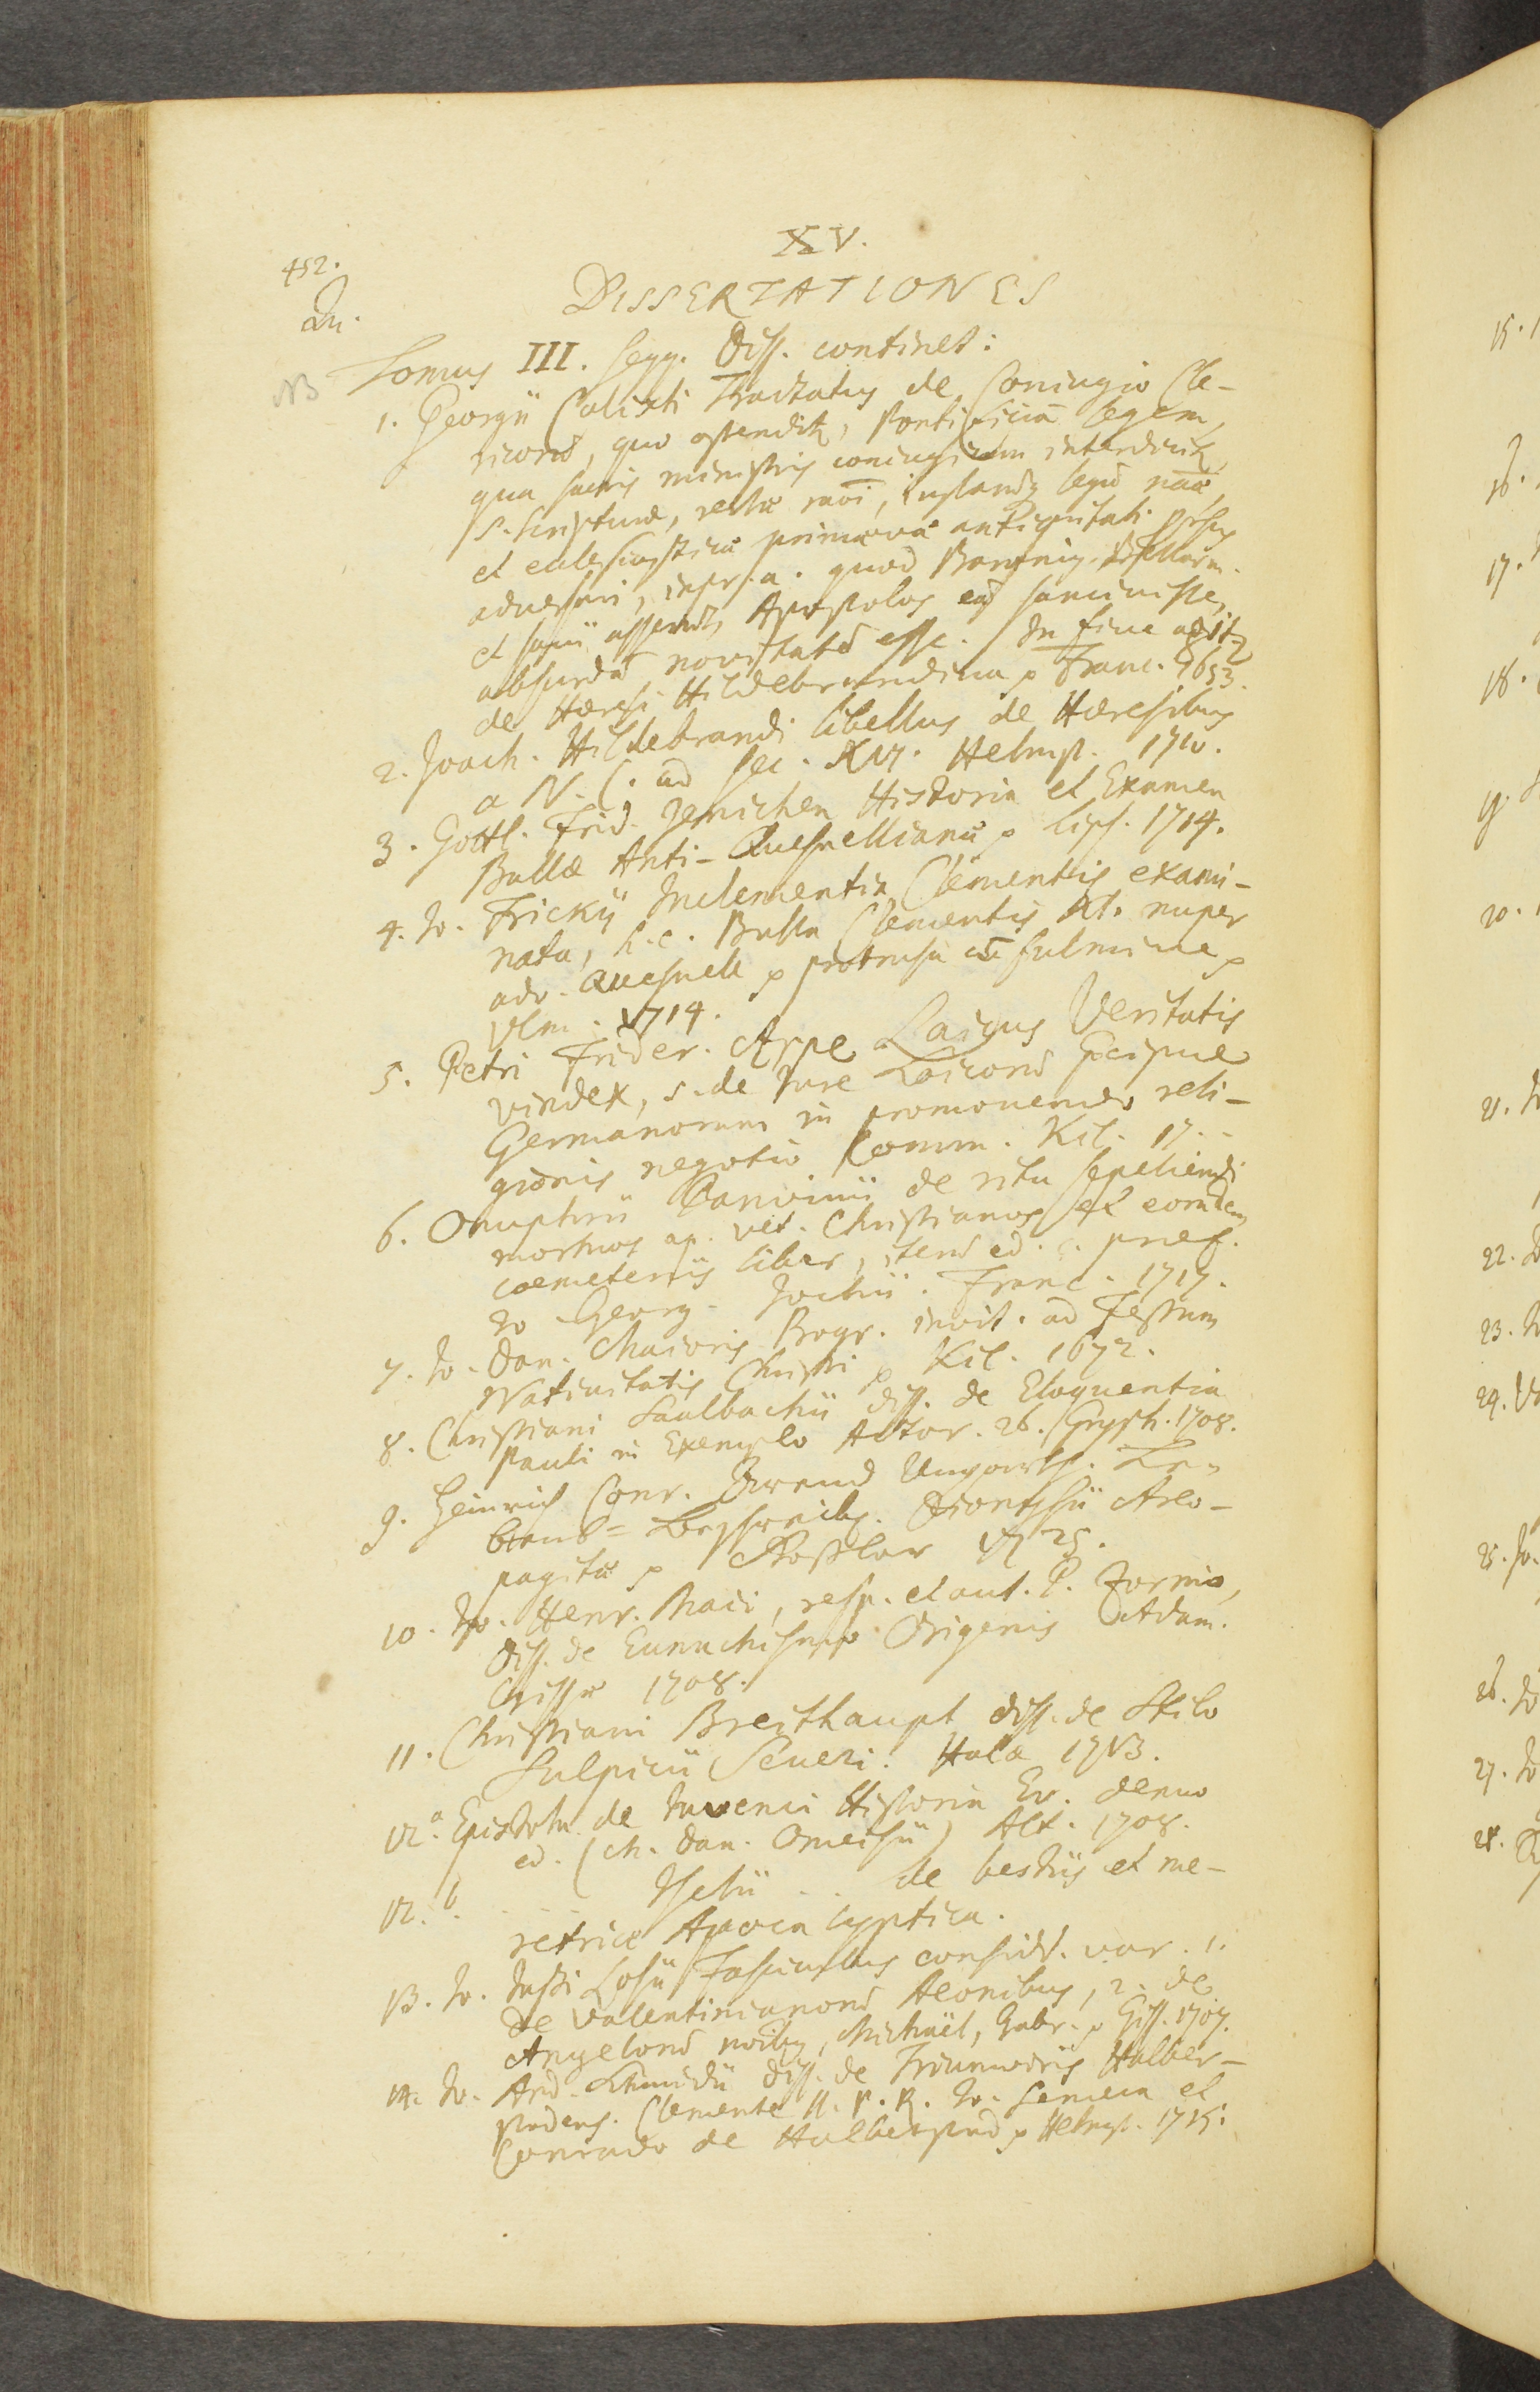 XV.
452.
DISSERTATIONES
Qu.
Tomus III. seqq. Diss. continet:
NB
1. Georgii Calixti Tractatus de Coniugio Cle-
ricorū, quo ostendit, Pontificiā legem,
qua sacris ministris coniugium interdicit,
S. Scripturæ, rectæ rāoi, legū nāā,
et ecclesiasticæ primævæ antiquitati
adversari, quod Baronius Bellarm.
et sequ. Apostolos eā sancivisse,
absurdā novitatē esse. In fine
de Hæresi Hildebrandina p Franc. 1653.
2. Joach. Hildebrandi libellus de Hæresibus
a N. C. ad sec. XVI. Helmst. 1710.
3. Gottl. Frid. Jenichen Historia et Examen
Bullæ Anti-Quesnellianæ p Lips. 1714.
4. Jo. Frickii Inclementia Clementis exami-
nata, h. e. Bulla Clementis XI. nuper
adv. Quesnell p protrusa cū fulmine p
Ulm. 1714.
5. Petri Frider. Arpe Laicus Veritatis
vindex, s. de Jure Laicorū præcipue
Germanorum in promovendo reli-
gionis negotio Comm. Kil. 17..
6. Onuphrii Panvinii de ritu sepeliendi
mortuos ap. vet. Christianos et eorundem
coemeteriis liber, iterū ed. c. præf.
Jo Georg. Jochii. Franc. 1717.
7. Jo. Dan. Maioris Progr. invit. ad Festum
Nativitatis Christi p Kil. 1672.
8. Christiani Saalbachii diss. de Eloquentia
Pauli in Exemplo Actor. 26. Gryph. 1708.
9. Heinrich Conr. Arend Le-
bens-Beschreibg. Dionysii Areo-
pagitæ p Goßlar 1725.
10. Jo. Henr. Maii, resp. et aut. P. Zornio,
Diss. de Eunuchismo Origenis Adam.
Gissæ 1708.
11. Christiani Breithaupt diss. de Stilo
Sulpicii Seueri. Halæ 1713.
12.a Epistola de Juvenci Historia Ev. denuo
ed. (Ch. Dan. Omeisii) Alt. 1708.
12. b. ... .. de bestiis et me-
retrice Apocalyptica.
13. Jo. Justi Losii Fasciculus consider. var. 1.
de Valentinianorū Aeonibus, 2. de
Angelorū noībus, Michaël, Gabr. p Giss. 1707.
14. Jo. And. Schmidii diss. de Triumviris Halber-
stadens. Clemente II. P. R. Jo. Semeca et
Conrado de Halberstad p Helmst. 1715.
15.
16.
17.
18.
19.
20.
21. Jo
22.
23. Jo
24.
25. Jo.
26. Jo
27. Jo
28.